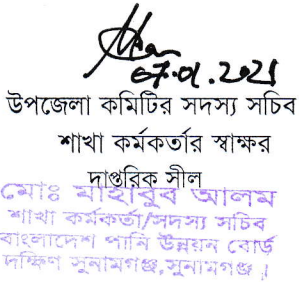 07.01.2021
উপজেলা কমিটির সদস্য সচিব
শাখা কর্মকর্তার স্বাক্ষর
দাপ্তরিক সীল
মোঃ মাহাবুব আলম
শাখা কর্মকর্তা/সদস্য সচিব
বাংলাদেশ পানি উন্নয়ন বোর্ড
দক্ষিণ সুনামগঞ্জ,সুনামগঞ্জ।